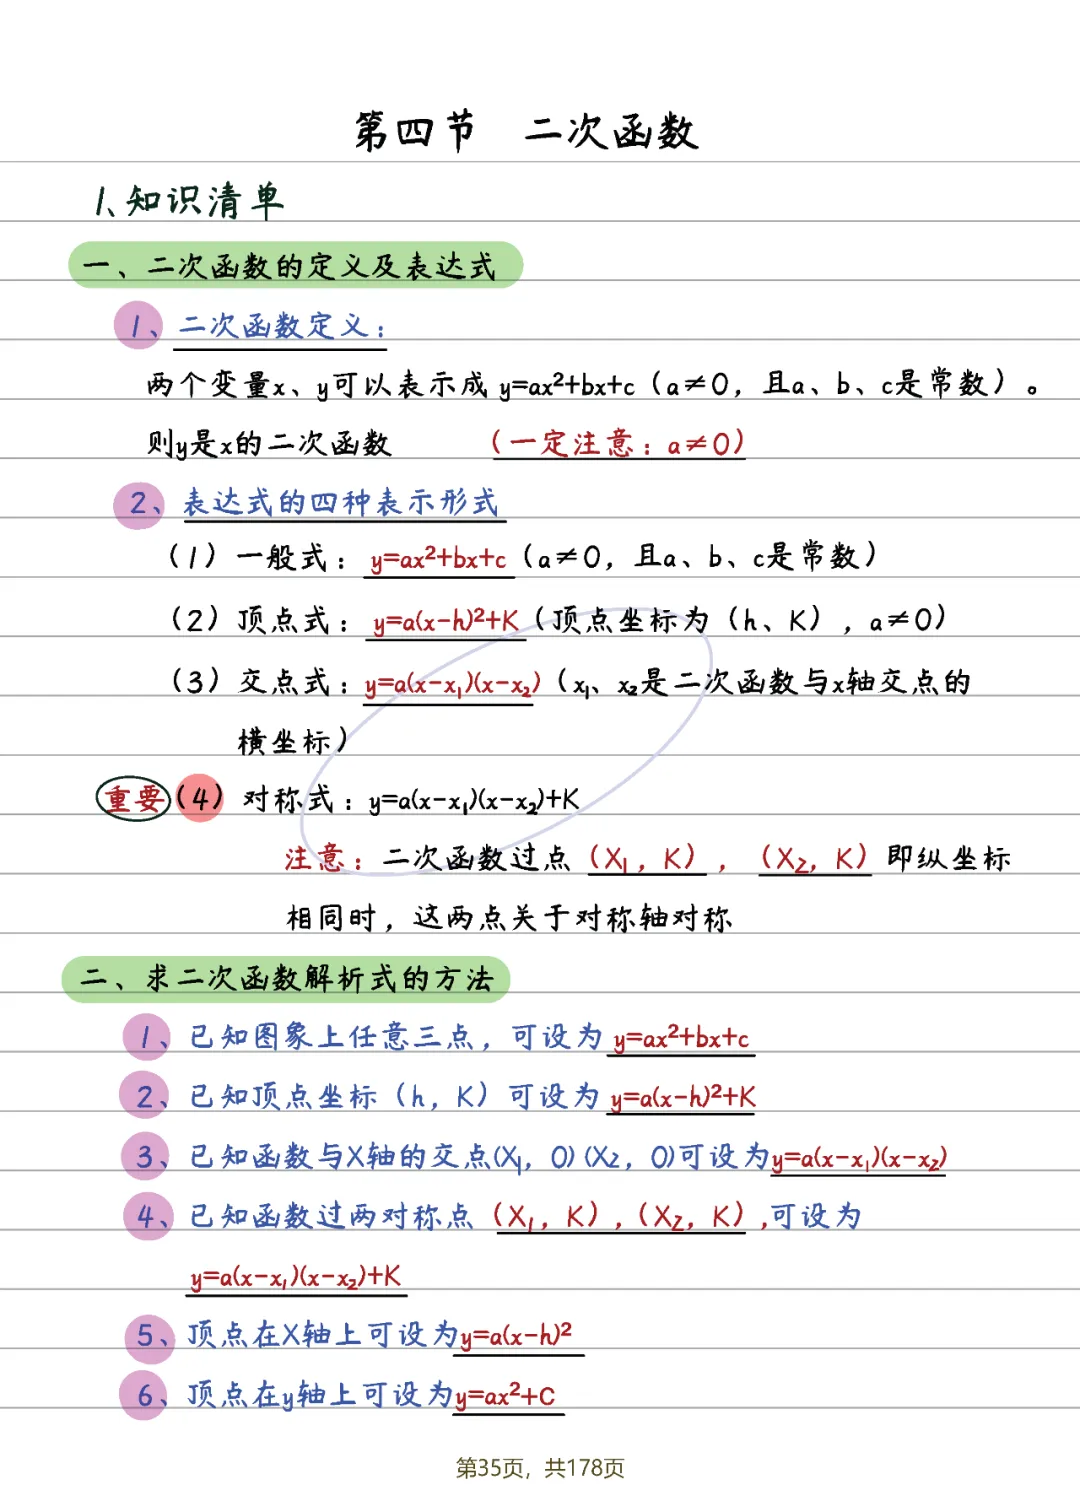 第四节 二次函数
1、知识清单
一、二次函数的定义及表达式
1、二次函数定义：
两个变量x、y可以表示成 y=ax²+bx+c（a≠0，且a、b、c是常数）。
则y是x的二次函数 （一定注意：a≠0）
2、表达式的四种表示形式
（1）一般式：y=ax²+bx+c（a≠0，且a、b、c是常数）
（2）顶点式：y=a(x-h)²+K（顶点坐标为（h、K），a≠0）
（3）交点式：y=a(x-x₁)(x-x₂)（x₁、x₂是二次函数与x轴交点的
横坐标）
重要（4）对称式：y=a(x-x₁)(x-x₂)+K
注意：二次函数过点（X₁，K），（X₂，K）即纵坐标
相同时，这两点关于对称轴对称
二、求二次函数解析式的方法
1、已知图象上任意三点，可设为 y=ax²+bx+c
2、已知顶点坐标（h，K）可设为 y=a(x-h)²+K
3、已知函数与X轴的交点(X₁，0)(X₂，0)可设为y=a(x-x₁)(x-x₂)
4、已知函数过两对称点（X₁，K），（X₂，K）,可设为
y=a(x-x₁)(x-x₂)+K
5、顶点在X轴上可设为y=a(x-h)²
6、顶点在y轴上可设为y=ax²+C
第35页，共178页